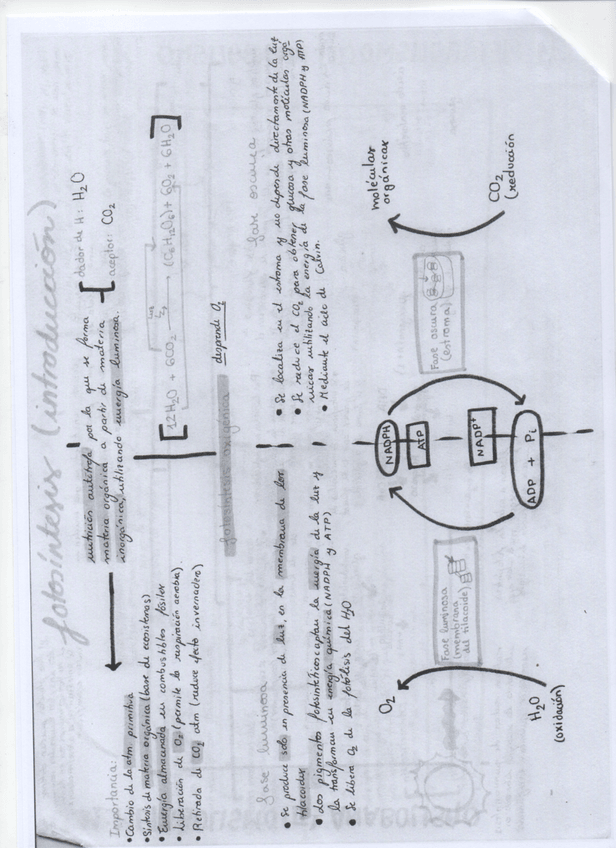 fotosíntesis (introducción)
nutrición autótrofa por la que se forma
materia orgánica a partir de materia
inorgánica, utilizando energía luminosa.
dador de H: H2O
aceptor: CO2
Importancia:
• Cambio de la atm. primitiva
• Síntesis de materia orgánica (base de ecosistemas)
• Energía almacenada en combustibles fósiles
• Liberación de O2 (permite la respiración aerobia)
• Retirada de CO2 atm (reduce efecto invernadero)
[12H2O + 6CO2 → (C6H12O6) + 6O2 + 6H2O]
fotosíntesis oxigénica desprende O2
fase luminosa
• Se produce solo en presencia de luz, en la membrana de los
tilacoides
• Los pigmentos fotosintéticos captan la energía de la luz y
la transforman en energía química (NADPH y ATP)
• Se libera O2 de la fotólisis del H2O
fase oscura
• Se localiza en el estroma y no depende directamente de la luz
• Se reduce el CO2 para obtener glucosa y otras moléculas orgá
nicas utilizando la energía de la fase luminosa (NADPH y ATP)
• Mediante el ciclo de Calvin.
O2
H2O
(oxidación)
Fase luminosa
(membrana
del tilacoide)
NADPH
ATP
NADP+
ADP + Pi
Fase oscura
(estroma)
moléculas
orgánicas
CO2
(reducción)